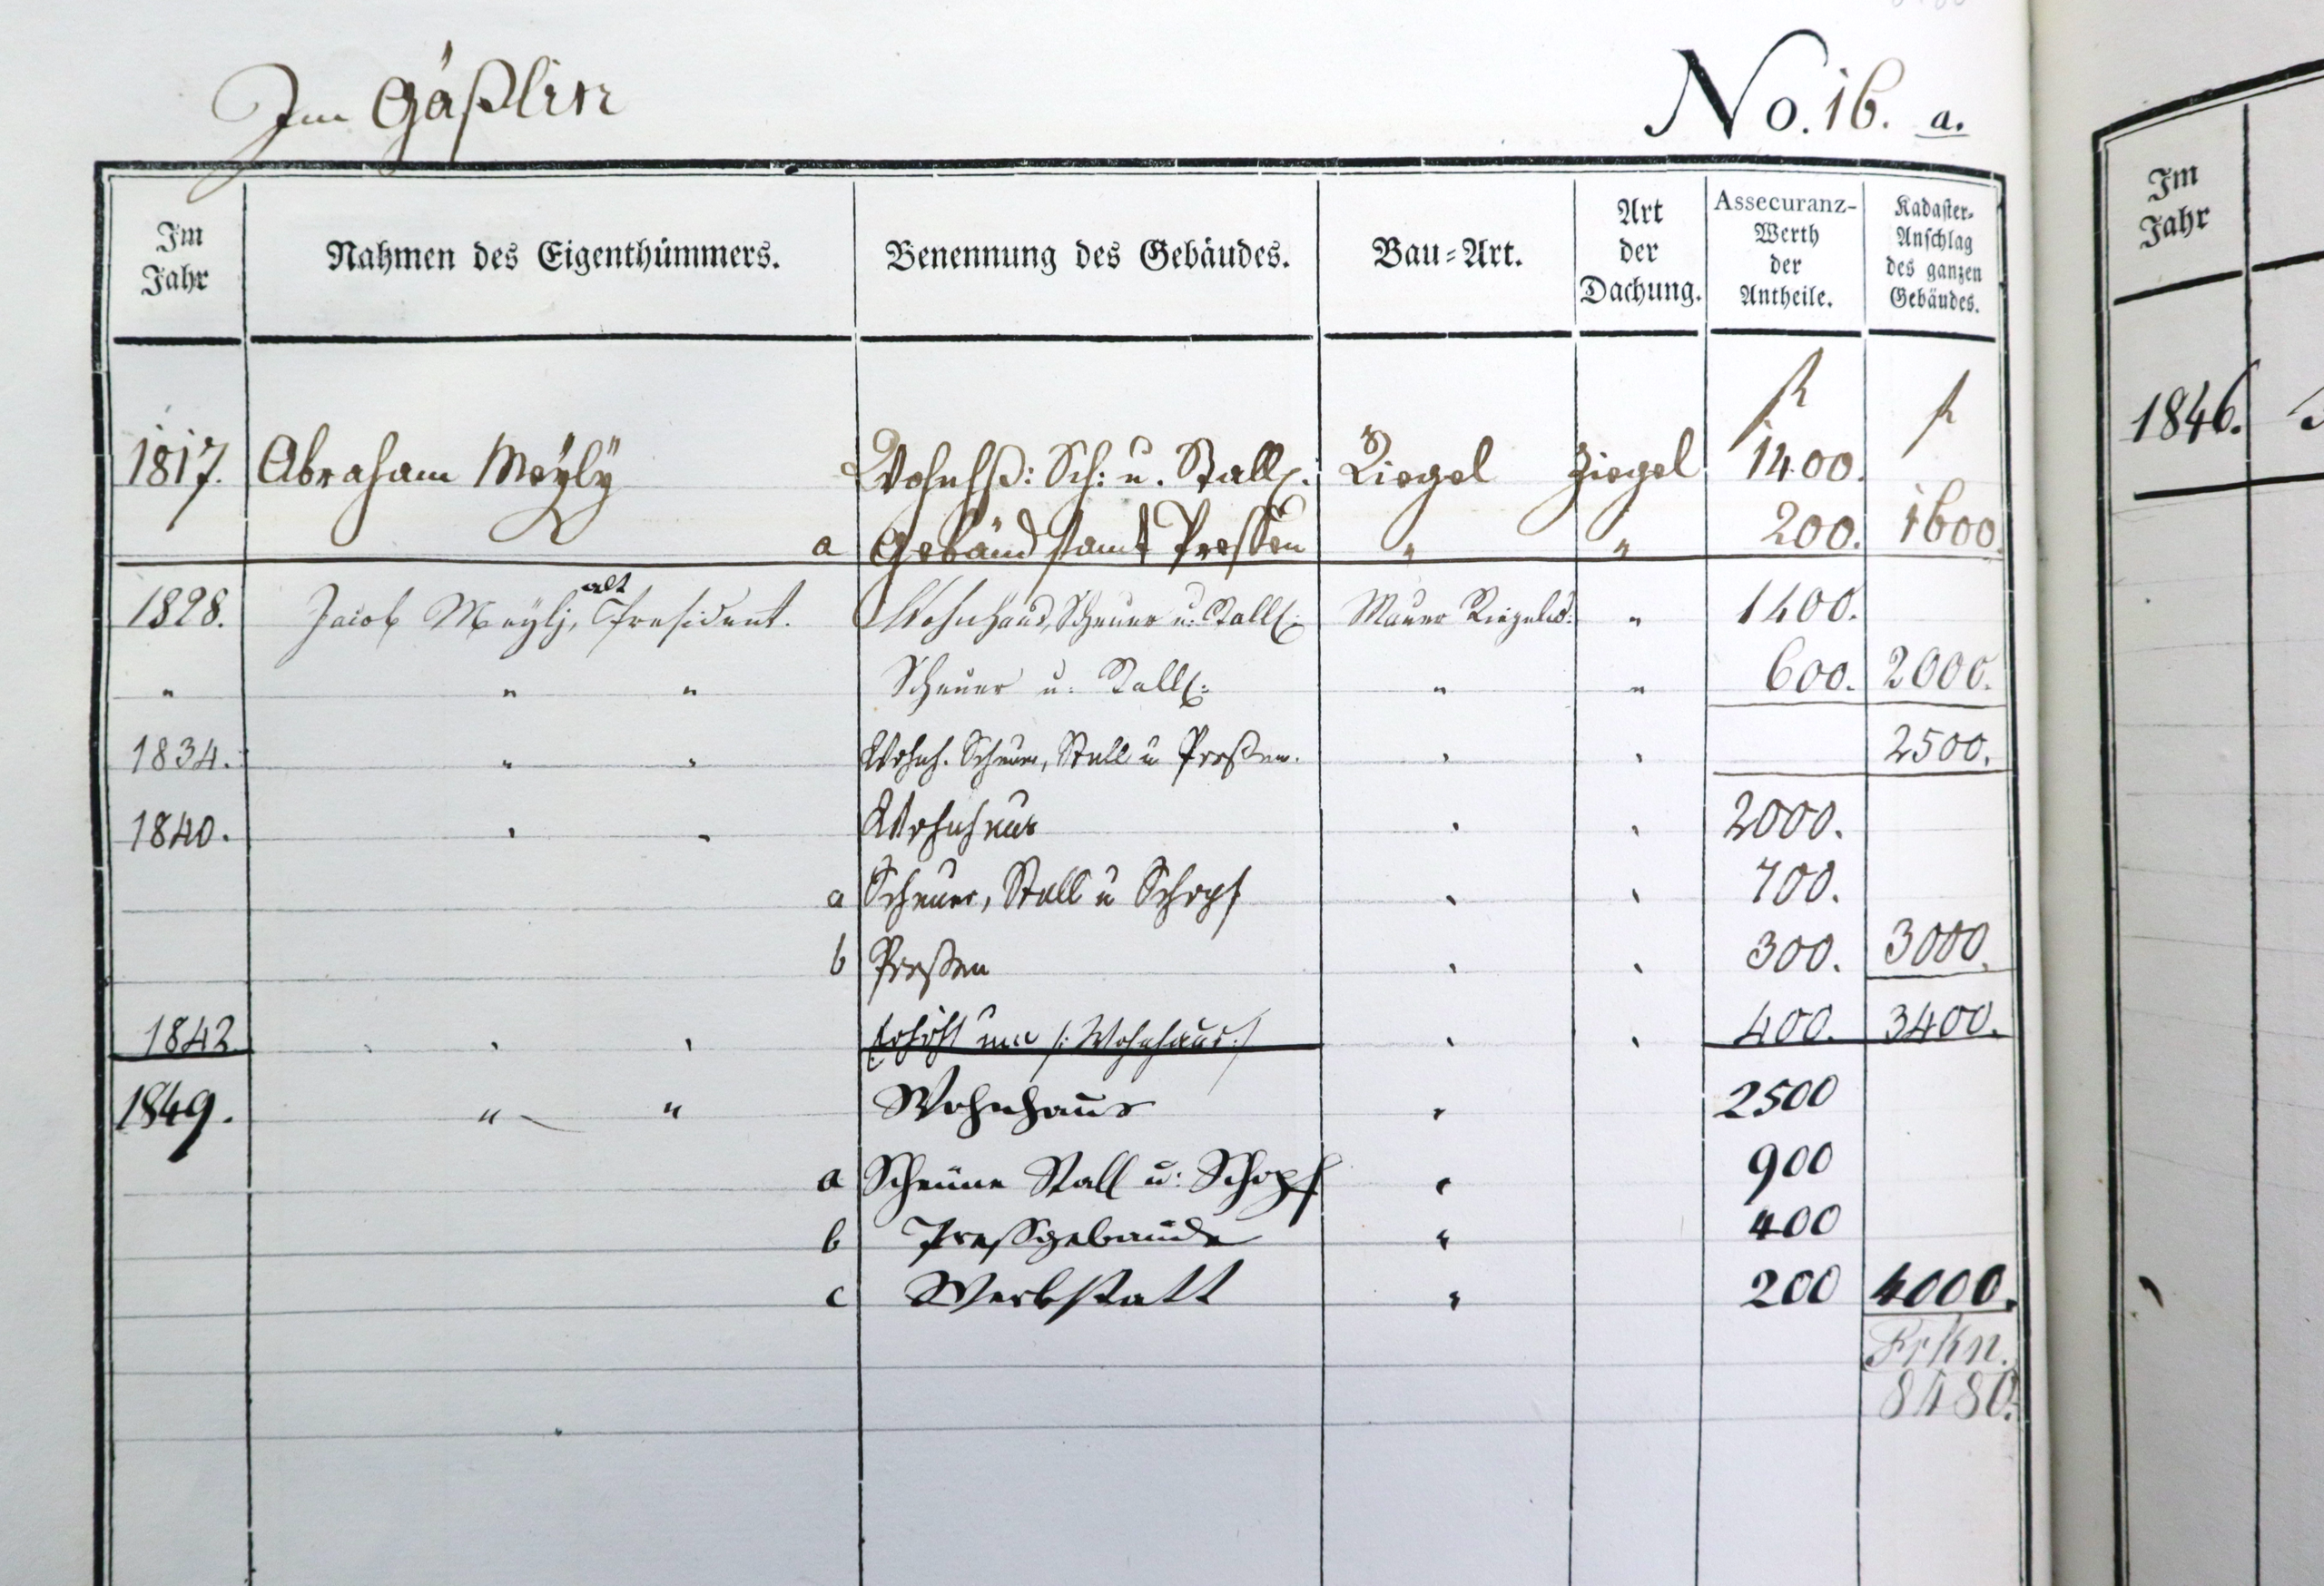 Im Gäßlin
No. 16. a.
Im Jahr
Nahmen des Eigenthümmers.
Benennung des Gebäudes.
Bau=Art.
Art der Dachung.
Assecuranz-Werth der Antheile.
Kadaster-Anschlag des ganzen Gebäudes.
Im Jahr
f f
1817. Abraham Meÿlÿ Wohnhß: Sch: u. Stallg. Riegel Ziegel 1400.
a Gebäud samt Preßen " " 200. 1600.
1828. Jacob Meÿlj, alt President. Wohnhaus, Scheuer u: Stallg: Mauer Riegelw: " 1400.
" " " Scheuer u: Stallg: " " 600. 2000.
1834. " " Wohnh. Scheuer, Stall u Preßen. " " 2500.
1840. " " Wohnhaus " " 2000.
a Scheuer, Stall u Schopf " " 700.
b Preßen " " 300. 3000.
1842. " " Erhöht um /: Wohnhaus :/ " " 400. 3400.
1849. " " Wohnhaus " 2500
a Scheune Stall u: Schopf " 900
b Preßgebäude " 400
c Werkstatt " 200 4000.
Frkn.
8480.
1846.